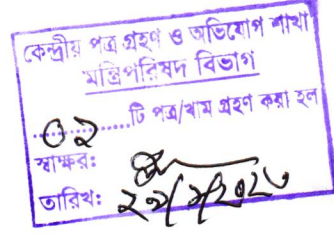 কেন্দ্রীয় পত্র গ্রহণ ও অভিযোগ শাখা
মন্ত্রিপরিষদ বিভাগ
০২ টি পত্র/খাম গ্রহণ করা হল
স্বাক্ষর:
তারিখ: